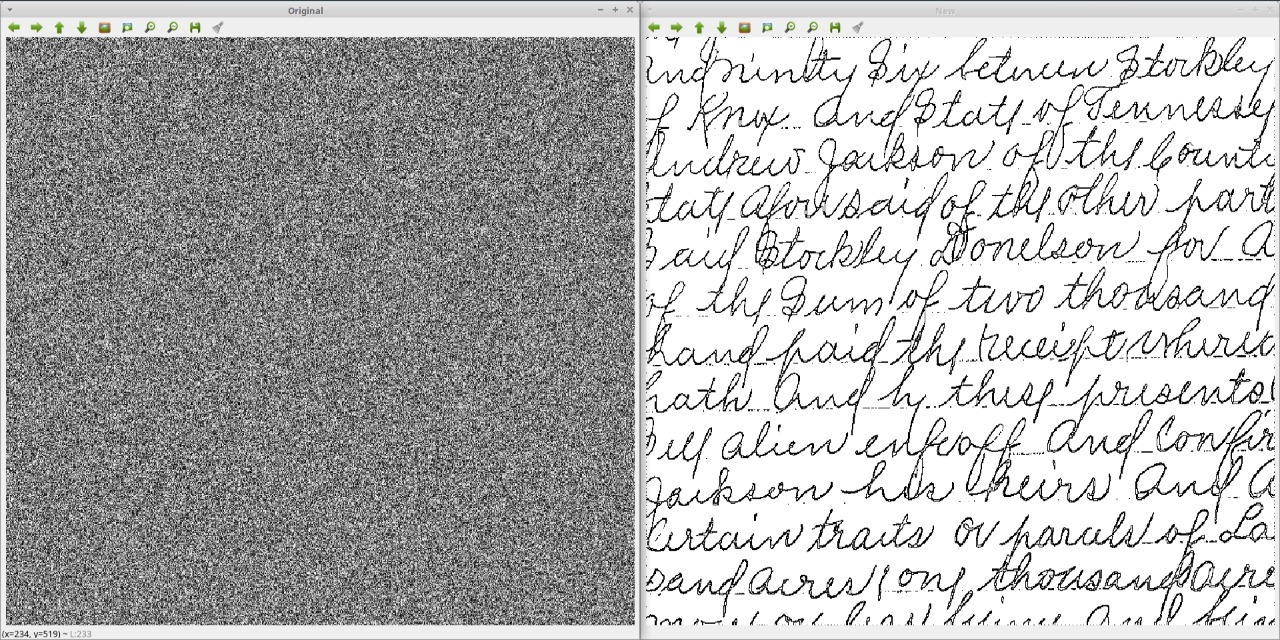 Original
New
and ninety Six between Stockley
of Knox And State of Tennessey
Andrew Jackson of the Count
State Aforesaid of the other part
Said Stockley Donelson for A
of the Sum of two thousand
hand paid the receipt where
hath And by these presents
Sell alien enfeoff And Confir
Jackson his heirs And A
Certain traits or parcels of La
sand Acres one thousand Acre
And
(x=234, y=519) ~ L:233